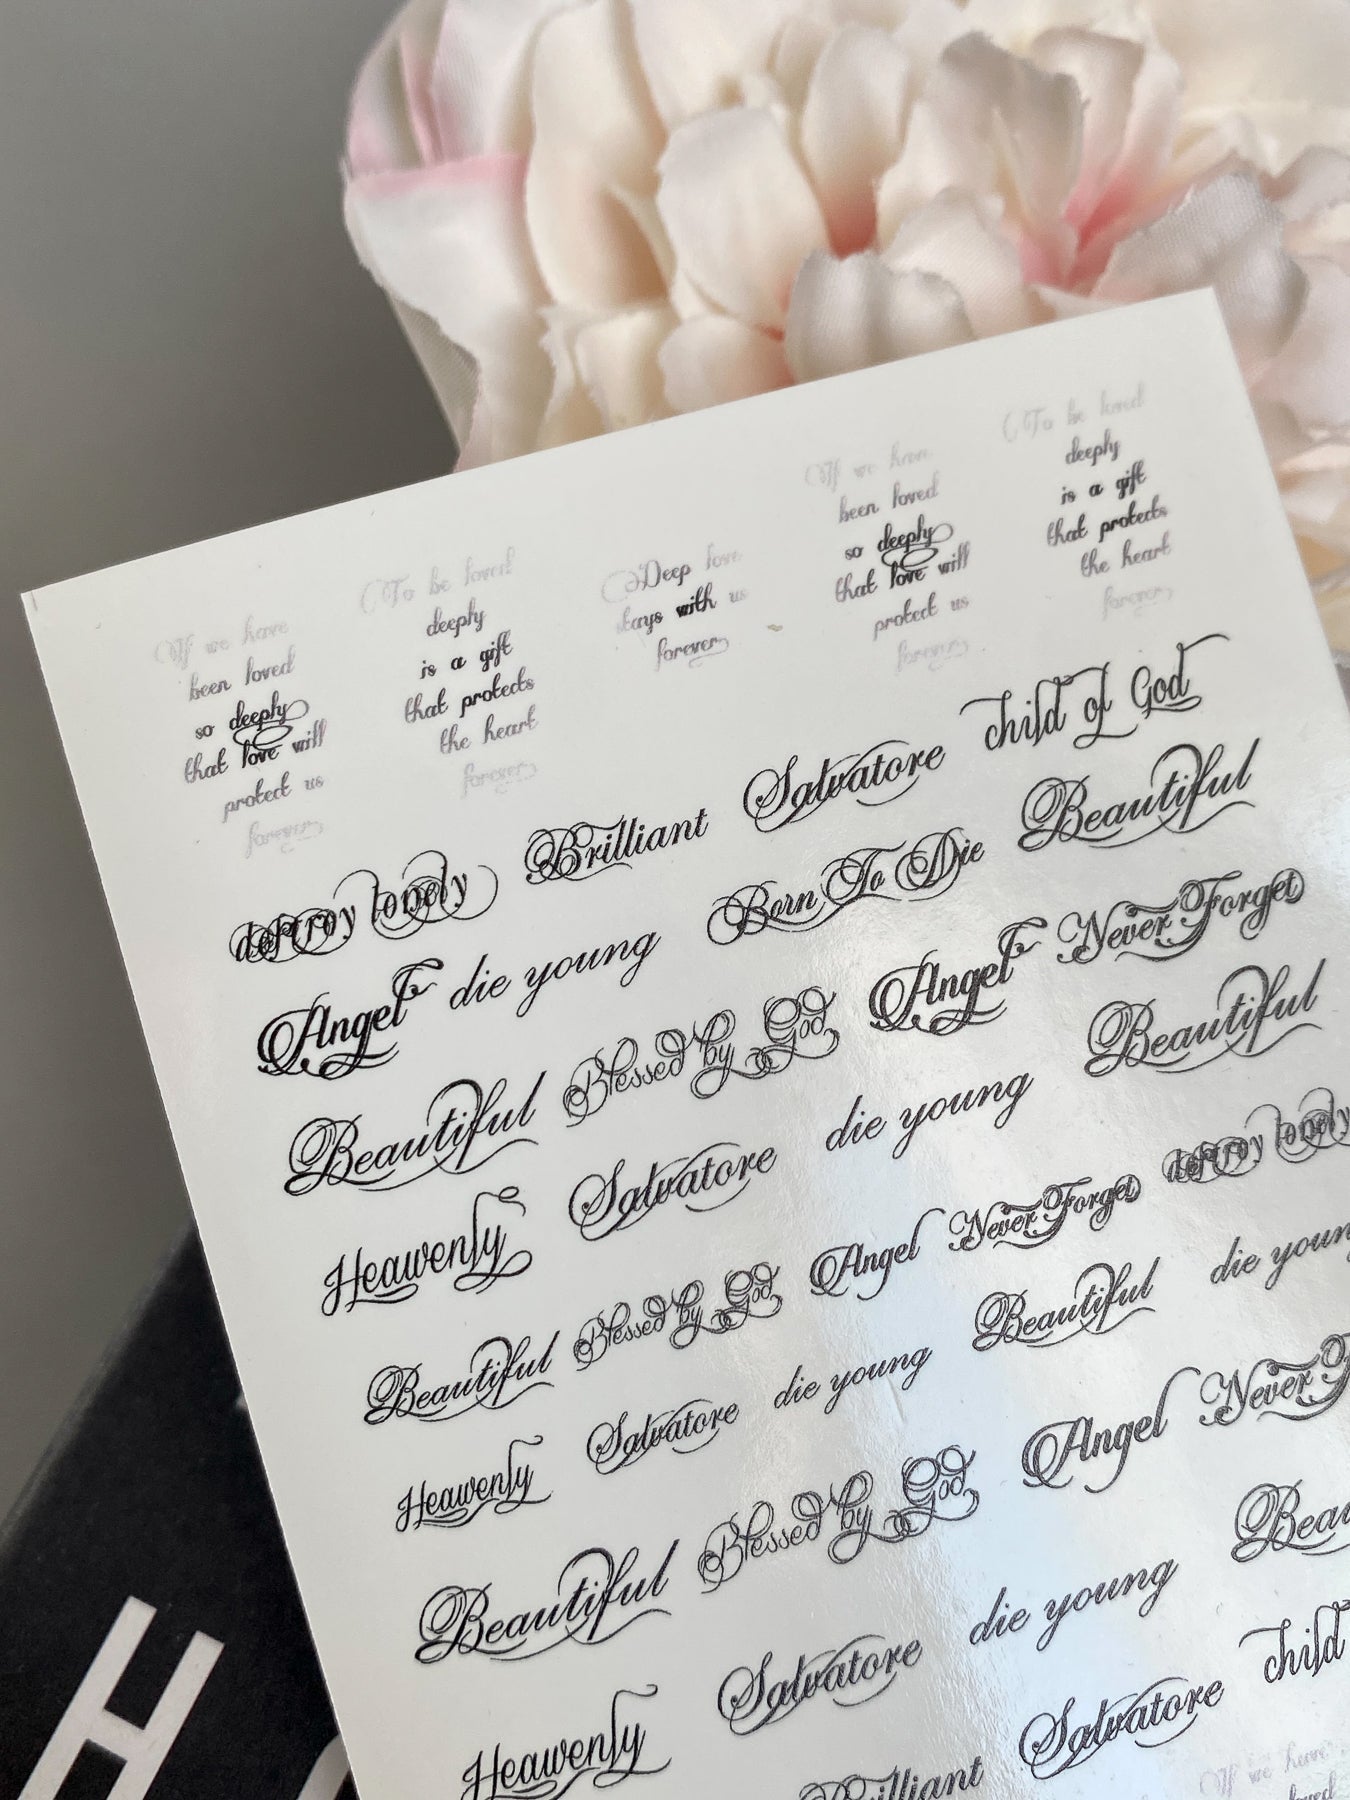 If we have
been loved
so deeply
that love will
protect us
forever
To be loved
deeply
is a gift
that protects
the heart
forever
Deep love
stays with us
forever
If we have
been loved
so deeply
that love will
protect us
forever
To be loved
deeply
is a gift
that protects
the heart
forever
destroy lonely Brilliant Salvatore child of God
Angel die young Born To Die Beautiful
Beautiful Blessed by God Angel Never Forget
Heavenly Salvatore die young Beautiful
Beautiful Blessed by God Angel Never Forget destroy lonely
Heavenly Salvatore die young Beautiful die young
Beautiful Blessed by God Angel Never
Heavenly Salvatore die young
Brilliant Salvatore child
If we have
loved
H